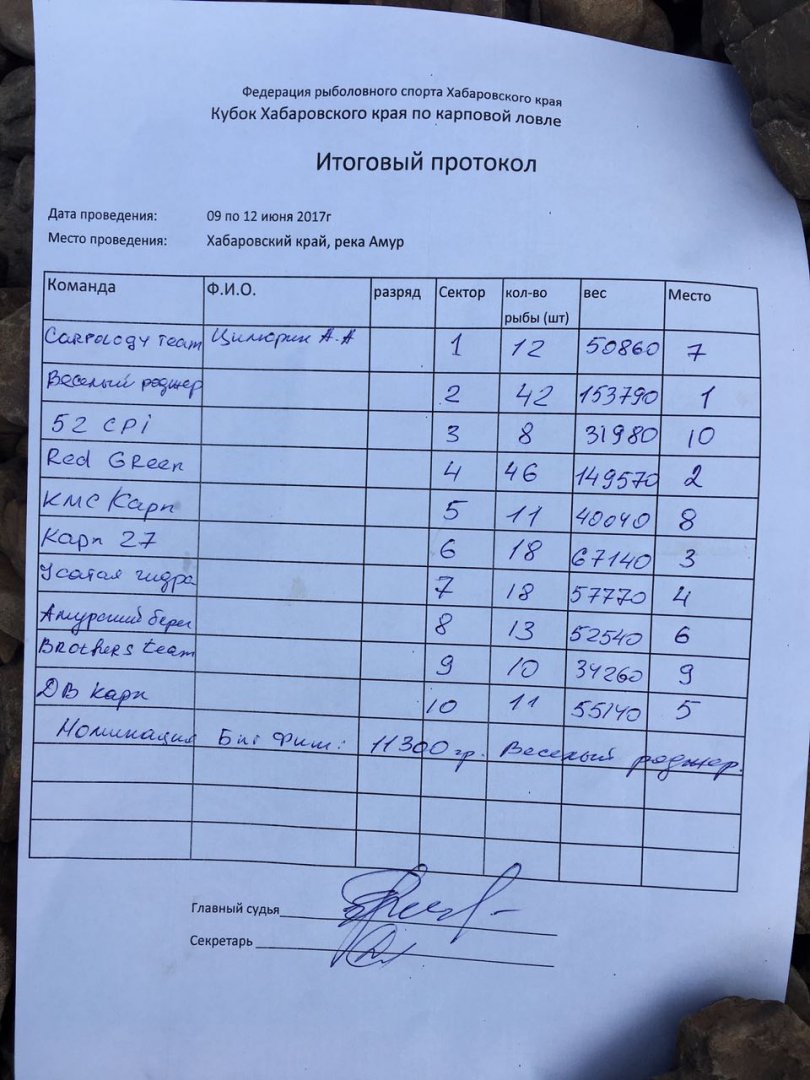 Федерация рыболовного спорта Хабаровского края
Кубок Хабаровского края по карповой ловле
Итоговый протокол
Дата проведения: 09 по 12 июня 2017г
Место проведения: Хабаровский край, река Амур
Команда Ф.И.О. разряд Сектор кол-во рыбы (шт) вес Место
Carpology team Цилюрик А.А 1 12 50860 7
Веселый роджер 2 42 153790 1
52 CPi 3 8 31980 10
Red Green 4 46 149570 2
КМС Карп 5 11 40040 8
Карп 27 6 18 67140 3
Усатая гидра 7 18 57770 4
Амурский берег 8 13 52540 6
Brothers team 9 10 34260 9
ДВ карп 10 11 55140 5
Номинация Биг Фиш: 11300 гр. Веселый роджер.
Главный судья
Секретарь